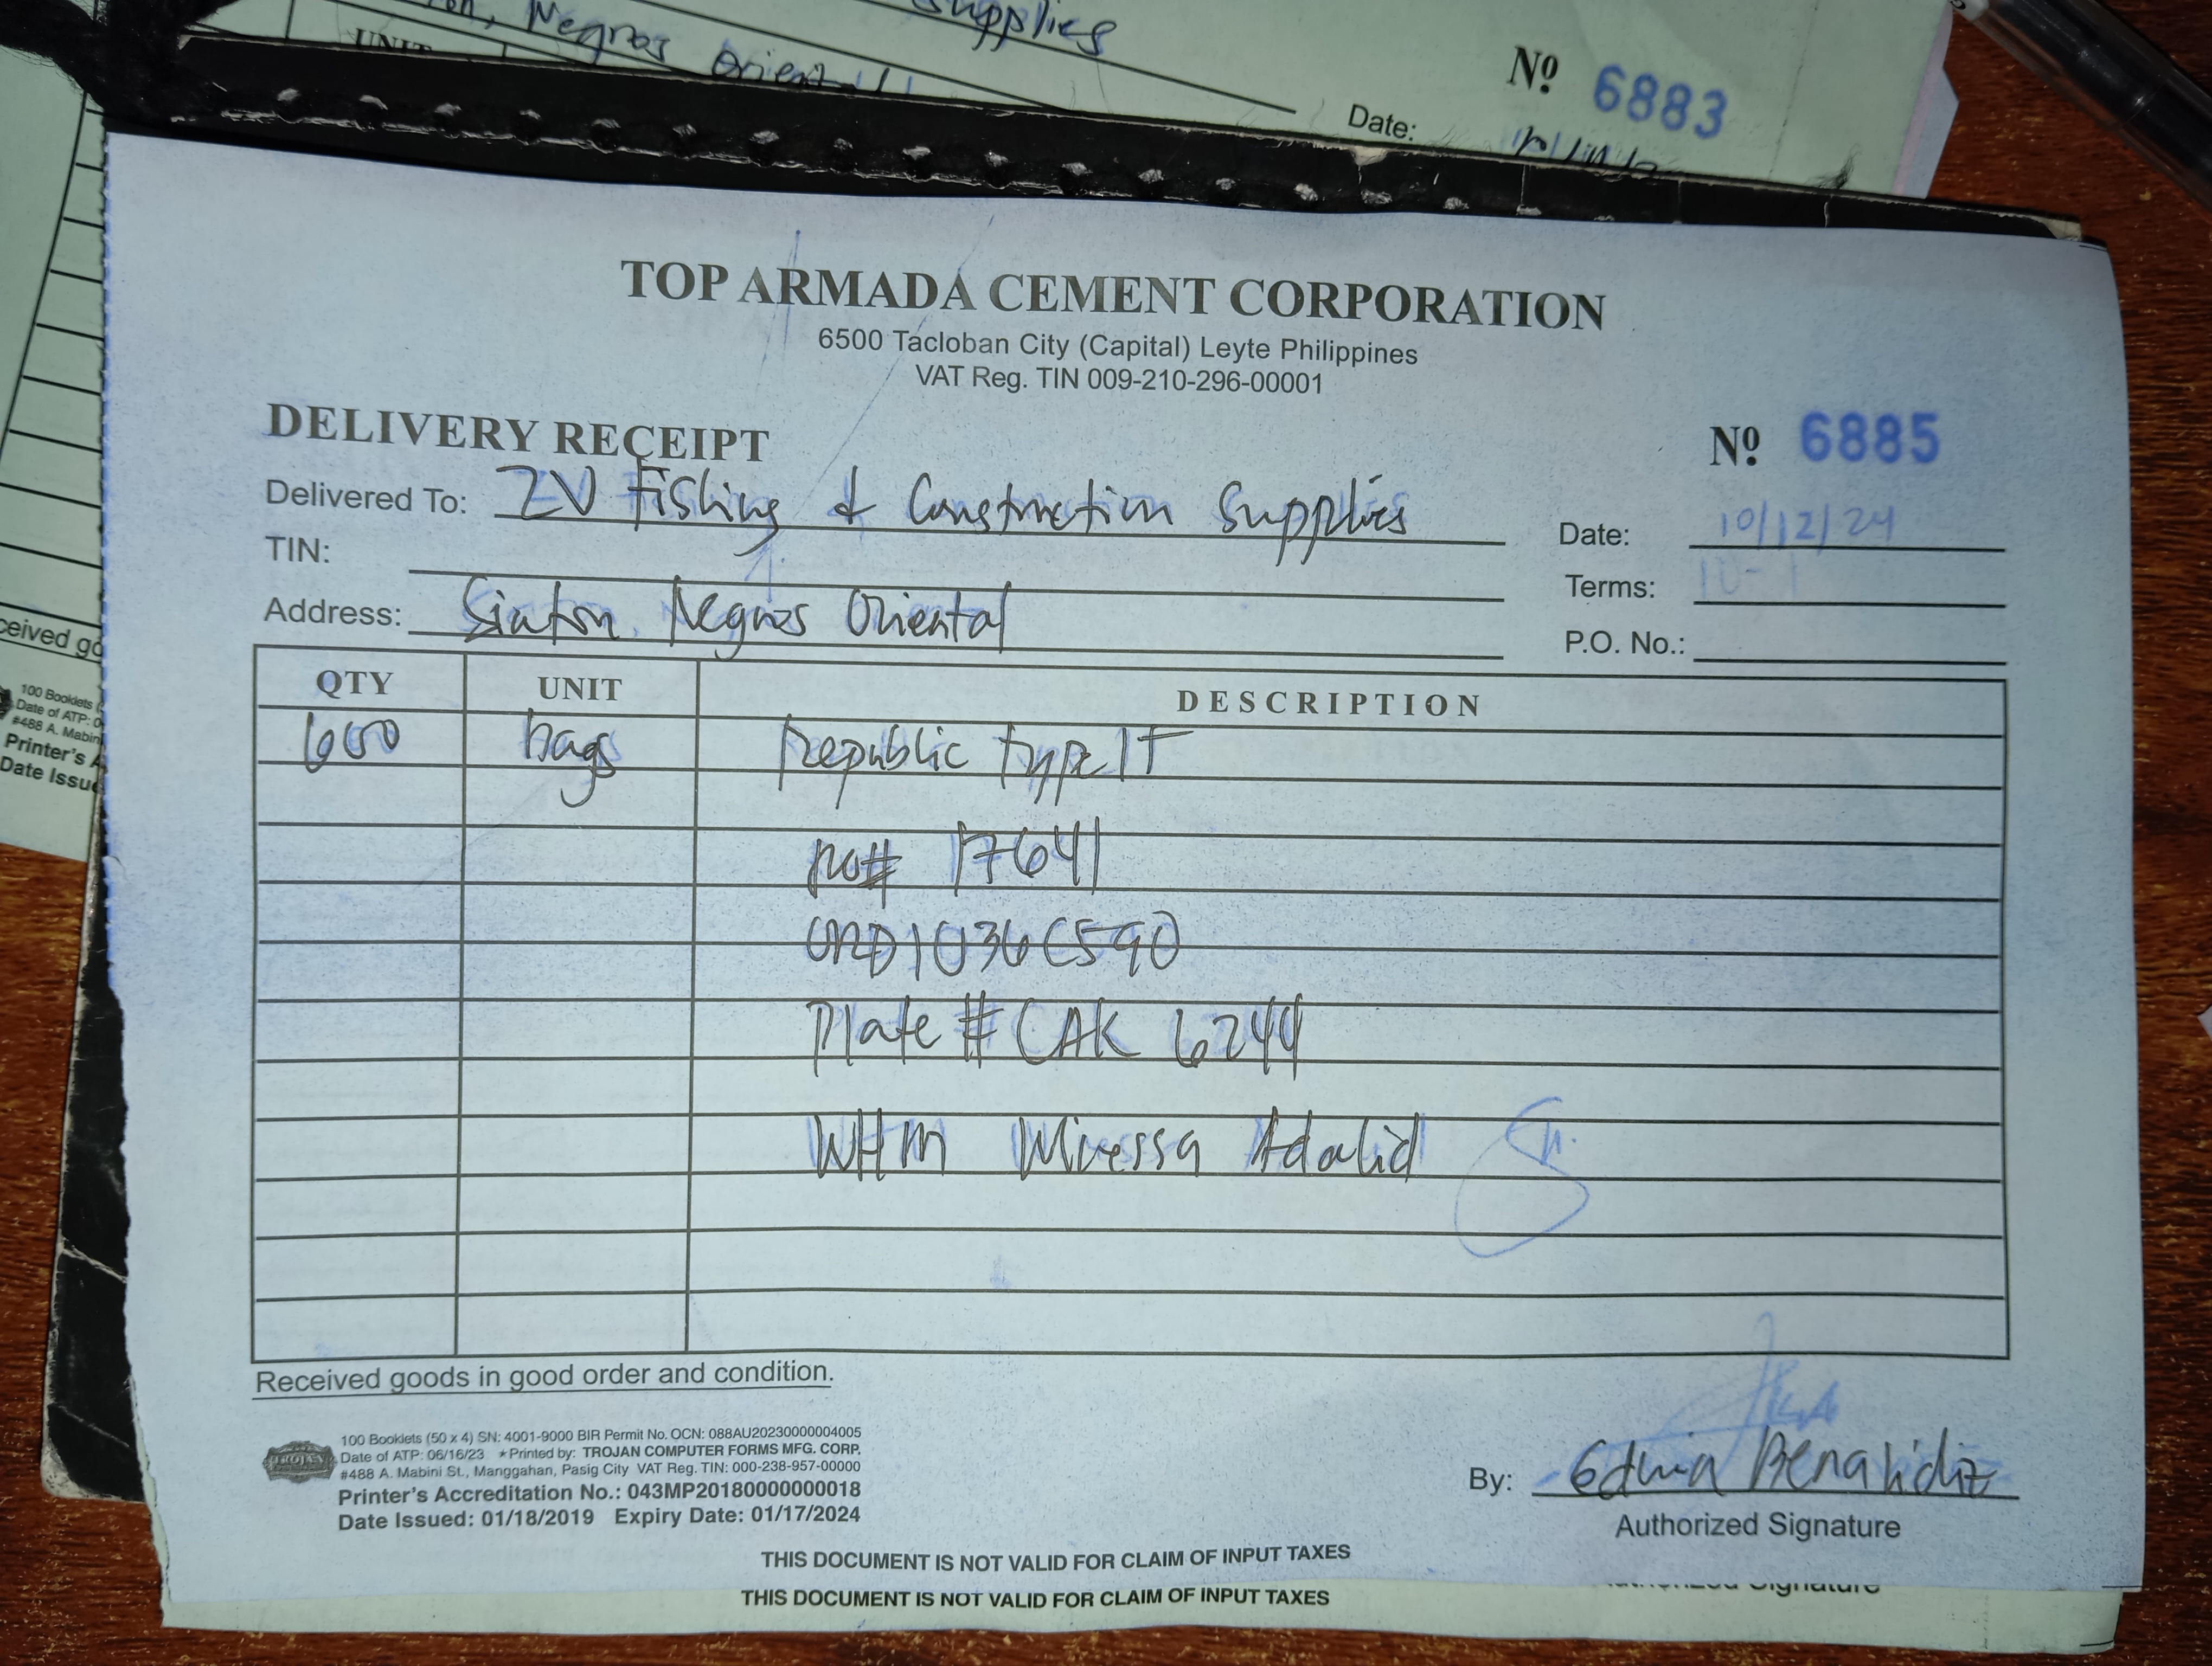 Negros Oriental
Supplies
UNIT
Nº 6883
Date:
TOP ARMADA CEMENT CORPORATION
6500 Tacloban City (Capital) Leyte Philippines
VAT Reg. TIN 009-210-296-00001
DELIVERY RECEIPT
Nº 6885
Delivered To: ZV Fishing & Construction Supplies
Date: 10/12/24
TIN:
Terms:
Address: Siaton, Negros Oriental
P.O. No.:
QTY UNIT DESCRIPTION
600 bags Republic Type 1T
17641
Plate # CAK 6244
WHM Adalid
Received goods in good order and condition.
100 Booklets (50 x 4) SN: 4001-9000 BIR Permit No. OCN: 088AU20230000004005
Date of ATP: 06/16/23 ★Printed by: TROJAN COMPUTER FORMS MFG. CORP.
#488 A. Mabini St., Manggahan, Pasig City VAT Reg. TIN: 000-238-957-00000
Printer's Accreditation No.: 043MP20180000000018
Date Issued: 01/18/2019 Expiry Date: 01/17/2024
TROJAN
By:
Authorized Signature
THIS DOCUMENT IS NOT VALID FOR CLAIM OF INPUT TAXES
THIS DOCUMENT IS NOT VALID FOR CLAIM OF INPUT TAXES
Authorized Signature
ceived go
100 Booklets
Date of ATP: 0
#488 A. Mabin
Printer's A
Date Issue